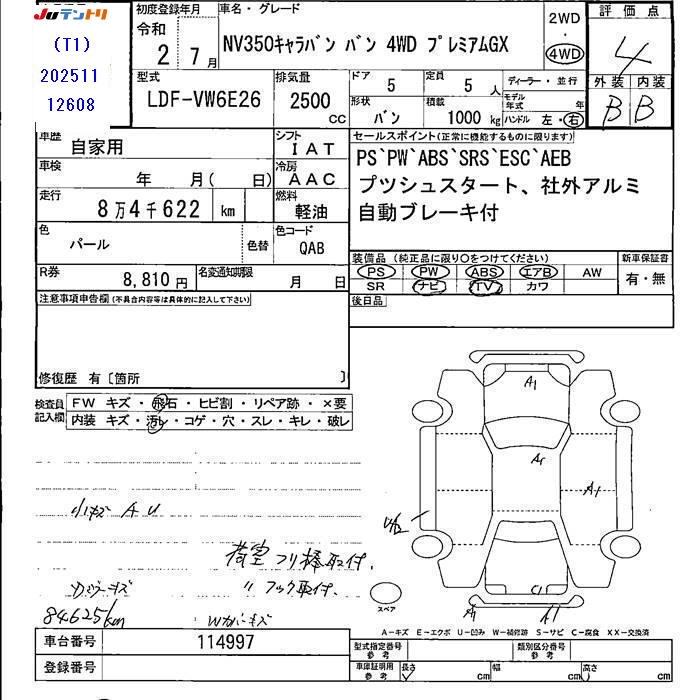 JUテントリ
(T1)
202511
12608
初度登録年月
令和
2 7月
車名・グレード
NV350キャラバン バン 4WD プレミアムGX
2WD
・
4WD
評価点
4
外装 内装
B B
型式
LDF-VW6E26
排気量
2500
cc
ドア
5
定員
5 人
形状
バン
積載
1000 kg
ディーラー・並行
モデル年式 年
ハンドル 左・右
車歴
自家用
シフト
IAT
セールスポイント(正常に機能するものに限ります)
PS`PW`ABS`SRS`ESC`AEB
プツシュスタート、社外アルミ
自動ブレーキ付
車検
年 月( 日)
冷房
AAC
走行
8万4千622 km
燃料
軽油
色
パール
色替
色コード
QAB
装備品(純正品に限り○をつけてください)
PS PW ABS エアB AW
SR ナビ TV カワ
新車保証書
有・無
R券
8,810円
名変通知期限
月 日
後日品
注意事項申告欄(不具合内容等は具体的に記入して下さい)
修復歴 有〔箇所 〕
検査員記入欄
FW キズ・飛石・ヒビ割・リペア跡・×要
内装 キズ・汚レ・コゲ・穴・スレ・キレ・破レ
小キズ A U
荷室フリ棒取付.
〃 フック取付.
84625km
Wカバーキズ
A1
A1
U2
C1
A1
スペア
A-キズ E-エクボ U-凹み W-補修跡 S-サビ C-腐食 XX-交換済
車台番号
114997
登録番号
型式指定番号
参考
類別区分番号
参考
車庫証明用
参考
長さ cm 幅 cm 高さ cm